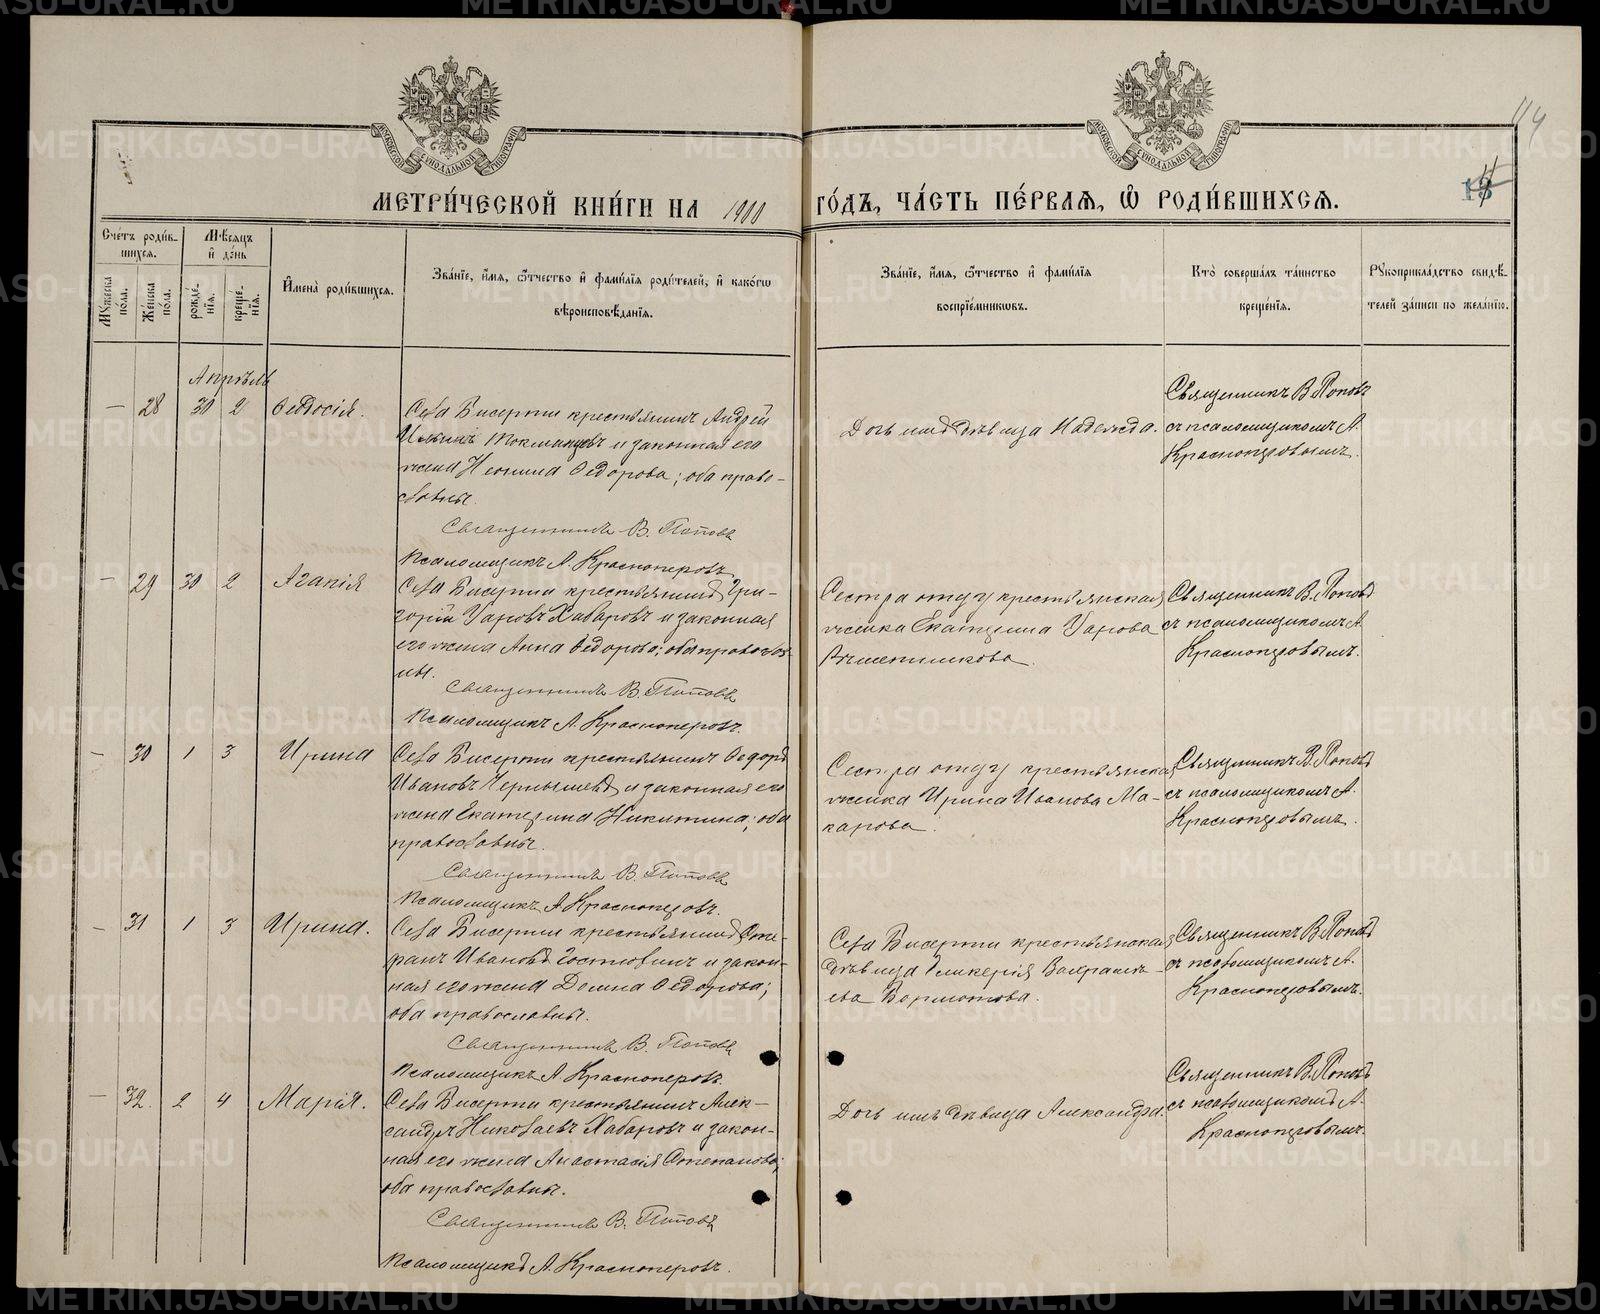 МОСКОВСКОЙ СѴНОДАЛЬНОЙ ТИПОГРАФІИ
МОСКОВСКОЙ СѴНОДАЛЬНОЙ ТИПОГРАФІИ
МЕТРИ́ЧЕСКОЙ КНИ́ГИ НА 1900 ГО́ДЪ, ЧА́СТЬ ПЕ́РВАЯ, Ѡ҆ РОДИ́ВШИХСЯ.
Сче́тъ роди́в-
шихся.
Мꙋ́жеска по́ла.
Же́нска по́ла.
Мѣ́сяцъ и҆ де́нь
рожде́-нїя.
креще́-нїя.
И҆мена̀ роди́вшихся.
Зва́нїе, и҆́мя, ѻ҆́тчество и҆ фами́лїя роди́телей, и҆ како́гѡ
вѣроисповѣ́данїя.
Зва́нїе, и҆́мя, ѻ҆́тчество и҆ фами́лїя
воспрїе́мниковъ.
Кто̀ соверша́лъ та́инство
креще́нїя.
Рꙋкоприкла́дство свидѣ́-
телей за́писи по жела́нїю.
Апрѣль
— 28 30 2 Ѳеодосія.
Села Бисерти крестьянинъ Андрей
Ильинъ Токманцевъ и законная его
жена Неонила Ѳедорова; оба право-
славны.
Священникъ В. Поповъ
Псаломщикъ А. Красноперовъ.
Дочь ихъ дѣвица Надежда.
Священникъ В. Поповъ
съ псаломщикомъ А.
Красноперовымъ.
— 29 30 2 Агапія
Села Бисерти крестьянинъ Гри-
горій Уаровъ Хабаровъ и законная
его жена Анна Ѳедорова; оба православ-
ны.
Священникъ В. Поповъ
Псаломщикъ А. Красноперовъ.
Сестра отцу крестьянская
женка Екатерина Уарова
Священникъ В. Поповъ
съ псаломщикомъ А.
Красноперовымъ.
— 30 1 3 Ирина
Села Бисерти крестьянинъ Ѳедоръ
Ивановъ Чернышевъ и законная его
жена Екатерина Никитина; оба
православны.
Священникъ В. Поповъ
Псаломщикъ А. Красноперовъ.
Сестра отцу крестьянская
женка Ирина Иванова Ма-
карова.
Священникъ В. Поповъ
съ псаломщикомъ А.
Красноперовымъ.
— 31 1 3 Ирина.
Села Бисерти крестьянинъ Сте-
фанъ Ивановъ и закон-
ная его жена Домна Ѳедорова;
оба православны.
Священникъ В. Поповъ
Псаломщикъ А. Красноперовъ.
Села Бисерти крестьянская
дѣвица Гликерія Вахрамѣ-
ева Бормотова.
Священникъ В. Поповъ
съ псаломщикомъ А.
Красноперовымъ.
— 32. 2 4 Марія.
Села Бисерти крестьянинъ Алек-
сандръ Николаевъ Хабаровъ и закон-
ная его жена Анастасія Степанова;
оба православны.
Священникъ В. Поповъ
Псаломщикъ А. Красноперовъ.
Дочь ихъ дѣвица Александра.
Священникъ В. Поповъ
съ псаломщикомъ А.
Красноперовымъ.
METRIKI.GASO-URAL.RU